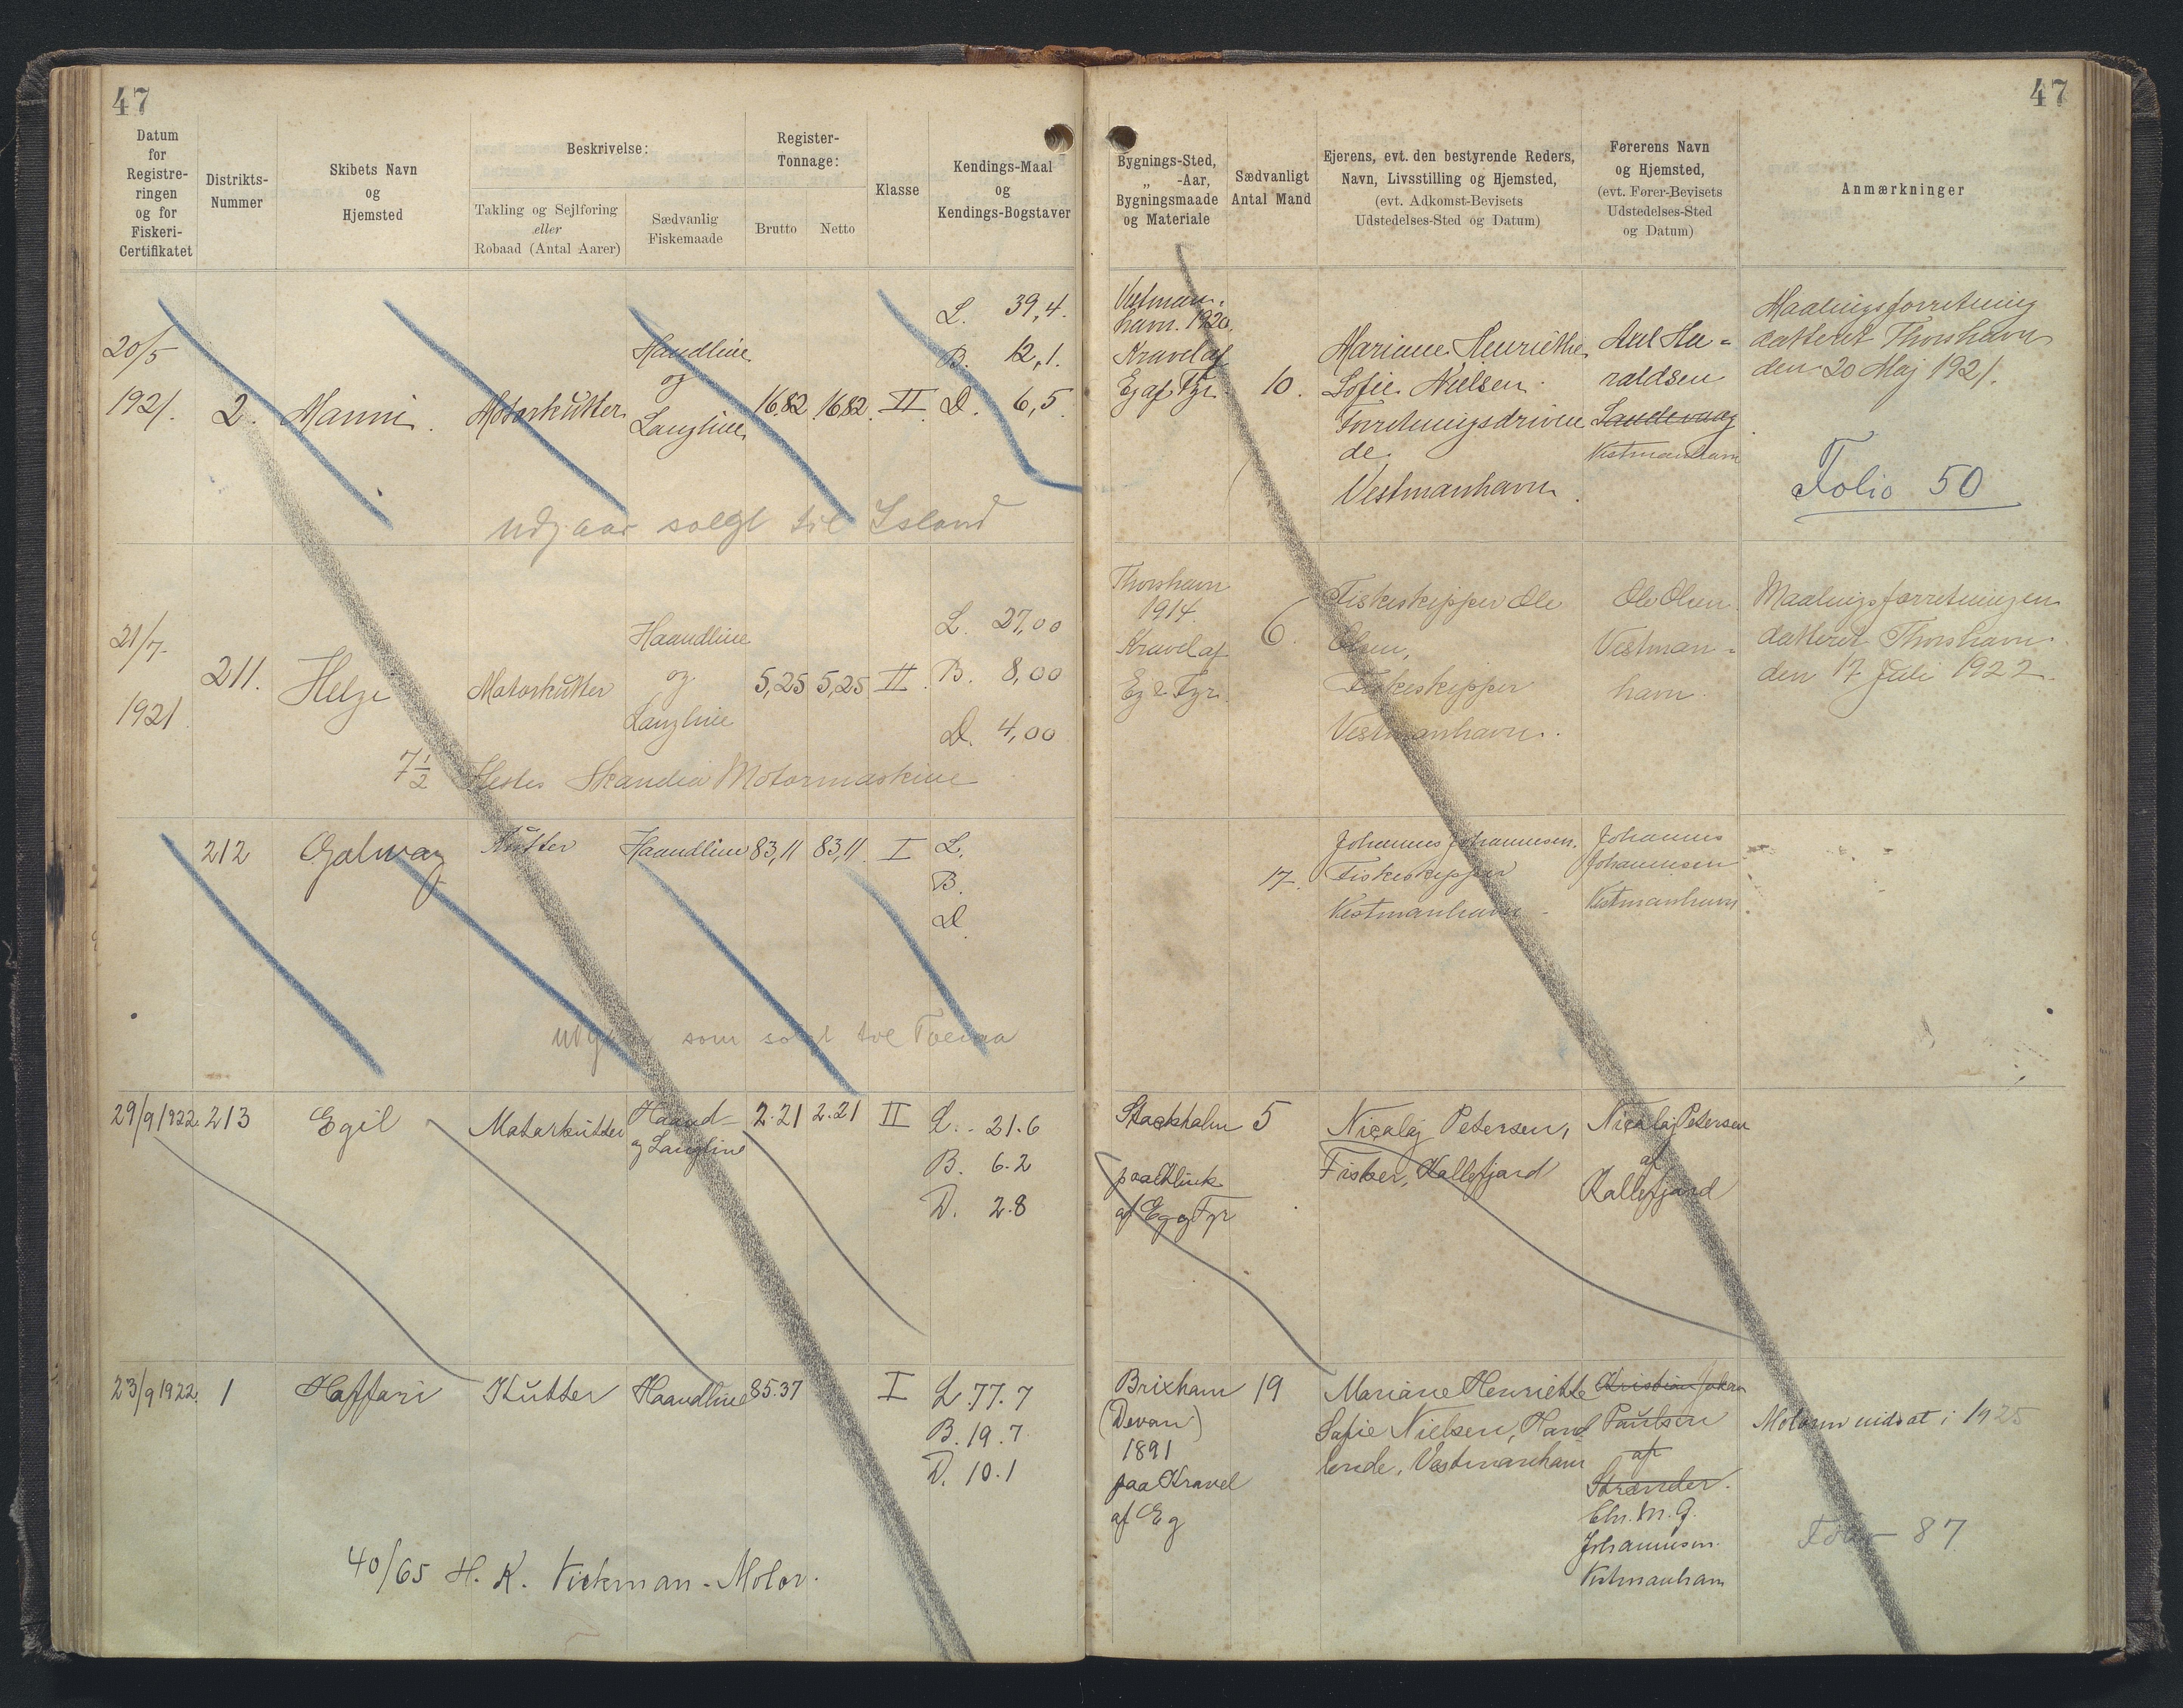 47
47
Datum
for
Registre-
ringen
og for
Fiskeri-
Certifikatet
Distrikts-
Nummer
Skibets Navn
og
Hjemsted
Beskrivelse:
Takling og Sejlføring
eller
Robaad (Antal Aarer)
Sædvanlig
Fiskemaade
Register-
Tonnage:
Brutto
Netto
Klasse
Kendings-Maal
og
Kendings-Bogstaver
Bygnings-Sted,
„ -Aar,
Bygningsmaade
og Materiale
Sædvanligt
Antal Mand
Ejerens, evt. den bestyrende Reders,
Navn, Livsstilling og Hjemsted,
(evt. Adkomst-Bevisets
Udstedelses-Sted og Datum)
Førerens Navn
og Hjemsted,
(evt. Fører-Bevisets
Udstedelses-Sted
og Datum)
Anmærkninger
20/5
1921.
2.
Manni.
Motorkutter
Haandline
og
Langline
16,82
16,82
II
L. 39,4.
B. 12,1.
D. 6,5.
Vestman-
havn. 1920.
Kravel af
Eg af Fyr.
10.
Mariane Henriethe
Sofie Nielsen
Forretningsdriven
de.
Vestmanhavn.
Ha-
raldsen
Sandevaag
Vestmanhavn
Maalingsforretning
datteret Thorshavn
den 20 Maj 1921.
Folio 50
udgaar solgt til Island
21/7
1921
211.
Helge
Motorkutter
Haandline
og
Langline
5,25
5,25
II.
L. 27,00
B. 8,00
D. 4,00
Thorshavn
1914.
Kravel af
Eg & Fyr.
6.
Fiskeskipper Ole
Olsen,
Fiskeskipper
Vestmanhavn.
Ole Olsen
Vestman-
havn.
Maalingsforretningen
datteret Thorshavn
den 17 Juli 1922.
7½ Hestes Skandia Motormaskine
212
Galway
Kutter
Haandline
83,11
83,11
I
L.
B.
D.
17.
Johannes Johannesen.
Fiskeskipper
Vestmanhavn
Johannes
Johannesen
Vestmanhavn
udgaar som solgt til
29/9 1922.
213
Egil
Motorkutter
Haand-
og Langline
2.21
2.21
II
L. 21.6
B. 6.2
D. 2.8
Stockholm
paa Klink
af Eg og Fyr
5
Nicolaj Petersen,
Fisker, Kollefjord
Nicolaj Petersen
af
Kollefjord
23/9 1922.
1
Haffari
Kutter
Haandline
85.37
I
L. 77.7
B. 19.7
D. 10.1
Brixham
(Devon)
1891
paa Kravel
af Eg
19
Mariane Henriette
Sofie Nielsen, Hand
lende, Vestmanhavn
Kristian Johan
Paulsen
af
Strender.
Chr. M. J.
Johannesen.
Vestmanhavn
Motoren indsat i 1925
Folio 87
40/65 H. K. Vickman-Motor.